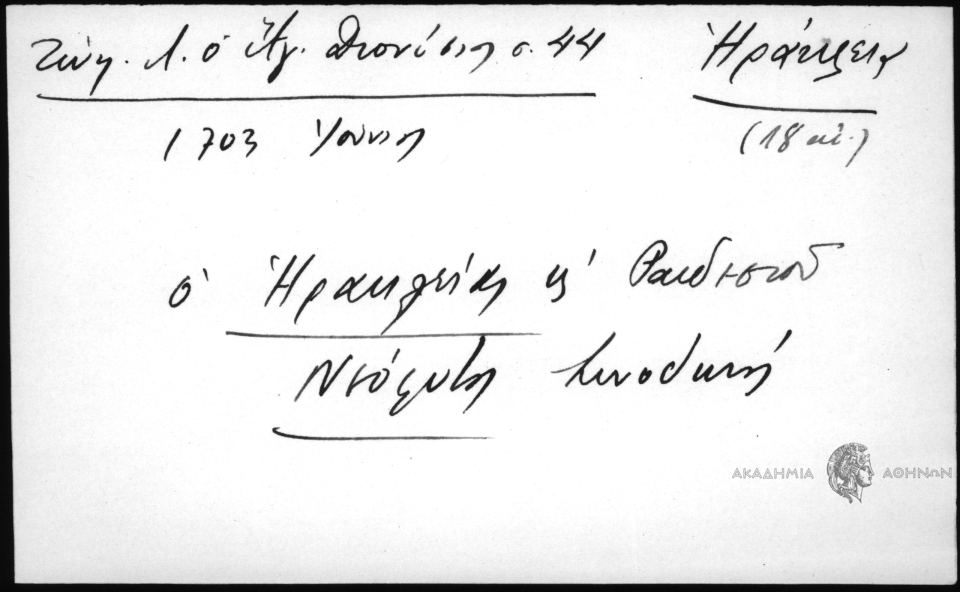 Ζώη. Λ. ὁ Ἅγ. Διονύσιος σ. 44 Ἡράκλεια
1703 Ἰούνιος (18 αἰ.)
ὁ Ἡρακλείας κ' Ραιδεστοῦ
Νεόφυτος Συνοδικῆς
ΑΚΑΔΗΜΙΑ ΑΘΗΝΩΝ